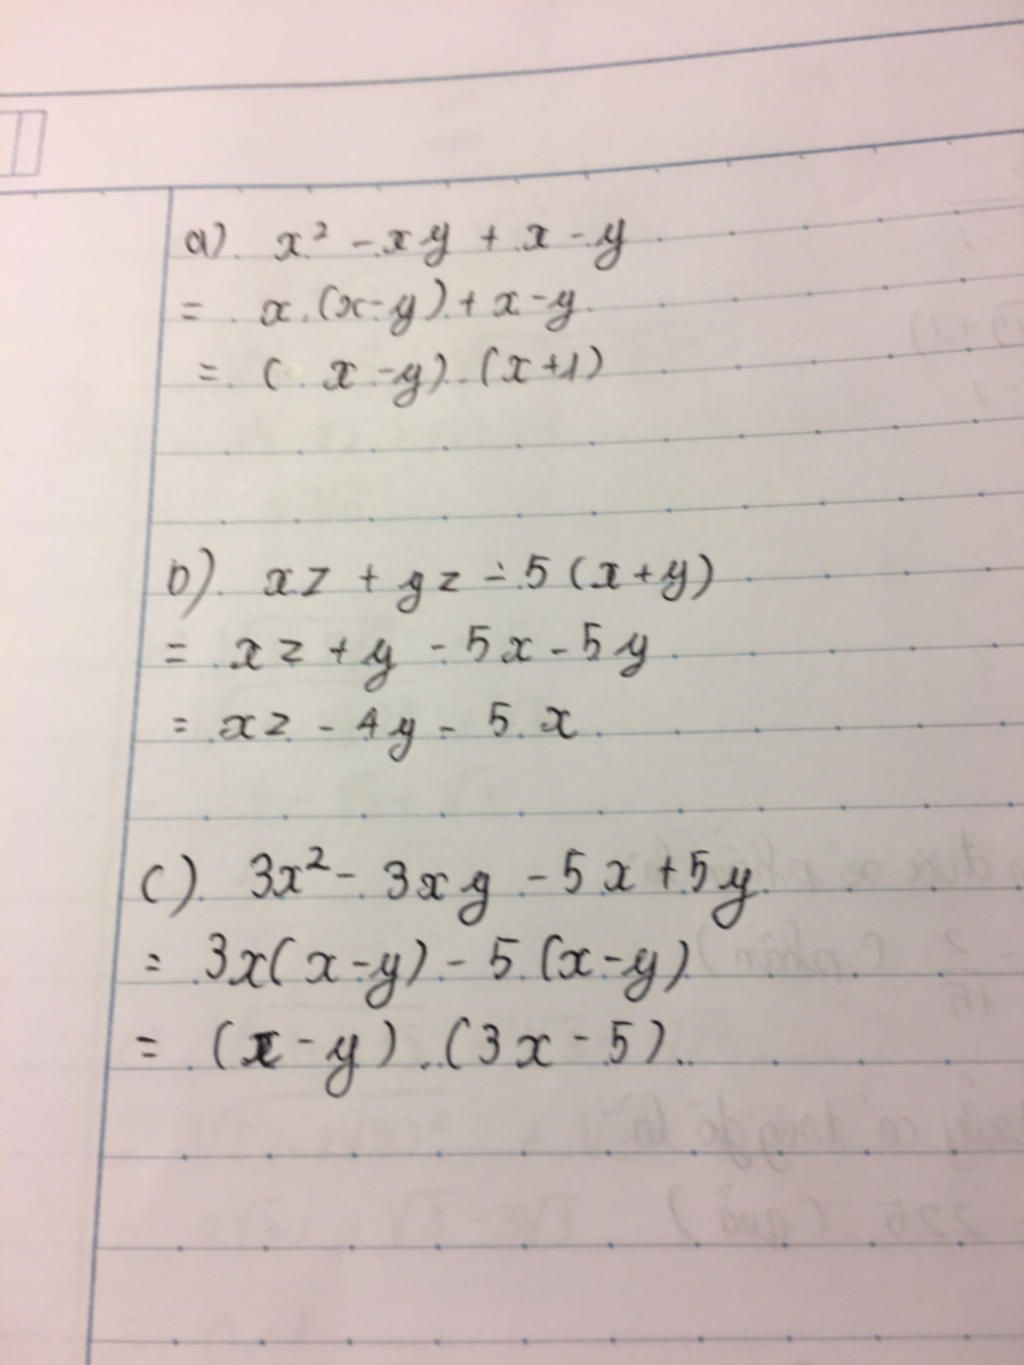 a) x² - xy + x - y
= x.(x-y) + x - y
= (x - y).(x+1)
b) xz + yz - 5(x+y)
= xz + y - 5x - 5y
= xz - 4y - 5x
c) 3x² - 3xy - 5x + 5y
= 3x(x-y) - 5(x-y)
= (x-y).(3x-5).